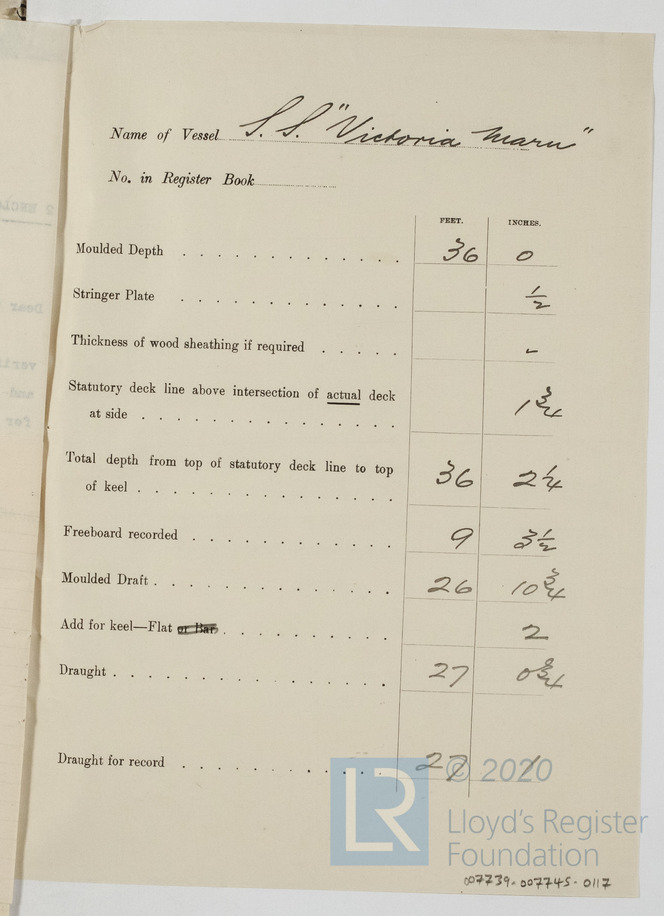 Name of Vessel S.S. "Victoria Maru"
No. in Register Book
FEET. INCHES.
Moulded Depth 36 0
Stringer Plate ½
Thickness of wood sheathing if required -
Statutory deck line above intersection of actual deck
at side 1¾
Total depth from top of statutory deck line to top
of keel 36 2¼
Freeboard recorded 9 3½
Moulded Draft 26 10¾
Add for keel—Flat or Bar 2
Draught 27 0¾
Draught for record 27 1
© 2020
LR
Lloyd's Register
Foundation
007739-007745-0117